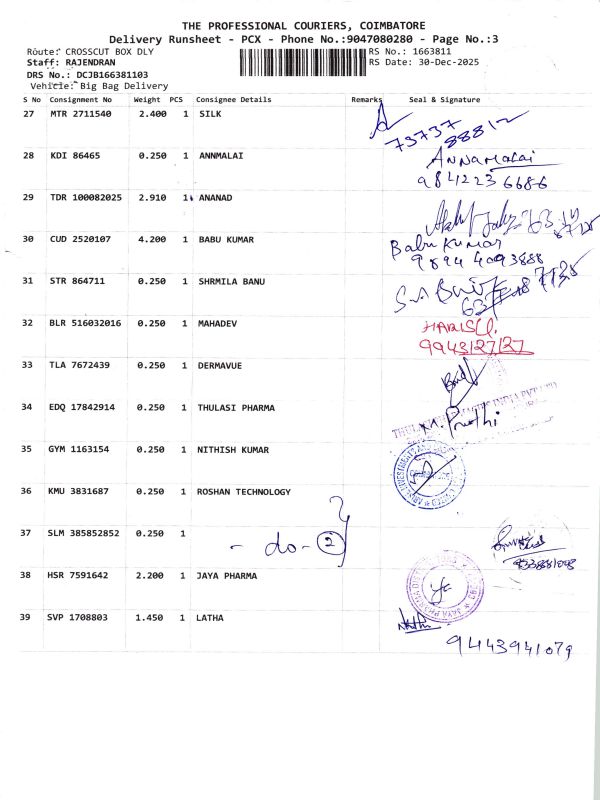 THE PROFESSIONAL COURIERS, COIMBATORE
Delivery Runsheet - PCX - Phone No.:9047080280 - Page No.:3
Route: CROSSCUT BOX DLY
RS No.: 1663811
Staff: RAJENDRAN
RS Date: 30-Dec-2025
DRS No.: DCJB166381103
Vehicle: Big Bag Delivery
S No Consignment No Weight PCS Consignee Details Remarks Seal & Signature
27 MTR 2711540 2.400 1 SILK
73737 88812
28 KDI 86465 0.250 1 ANNMALAI
ANNAMALAI
9842236686
29 TDR 100082025 2.910 1 ANANAD
30 CUD 2520107 4.200 1 BABU KUMAR
Babu Kumar
9894 4093888
31 STR 864711 0.250 1 SHRMILA BANU
32 BLR 516032016 0.250 1 MAHADEV
9943127127
33 TLA 7672439 0.250 1 DERMAVUE
34 EDQ 17842914 0.250 1 THULASI PHARMA
35 GYM 1163154 0.250 1 NITHISH KUMAR
36 KMU 3831687 0.250 1 ROSHAN TECHNOLOGY
37 SLM 385852852 0.250 1
- do - 2
38 HSR 7591642 2.200 1 JAYA PHARMA
39 SVP 1708803 1.450 1 LATHA
9443941079